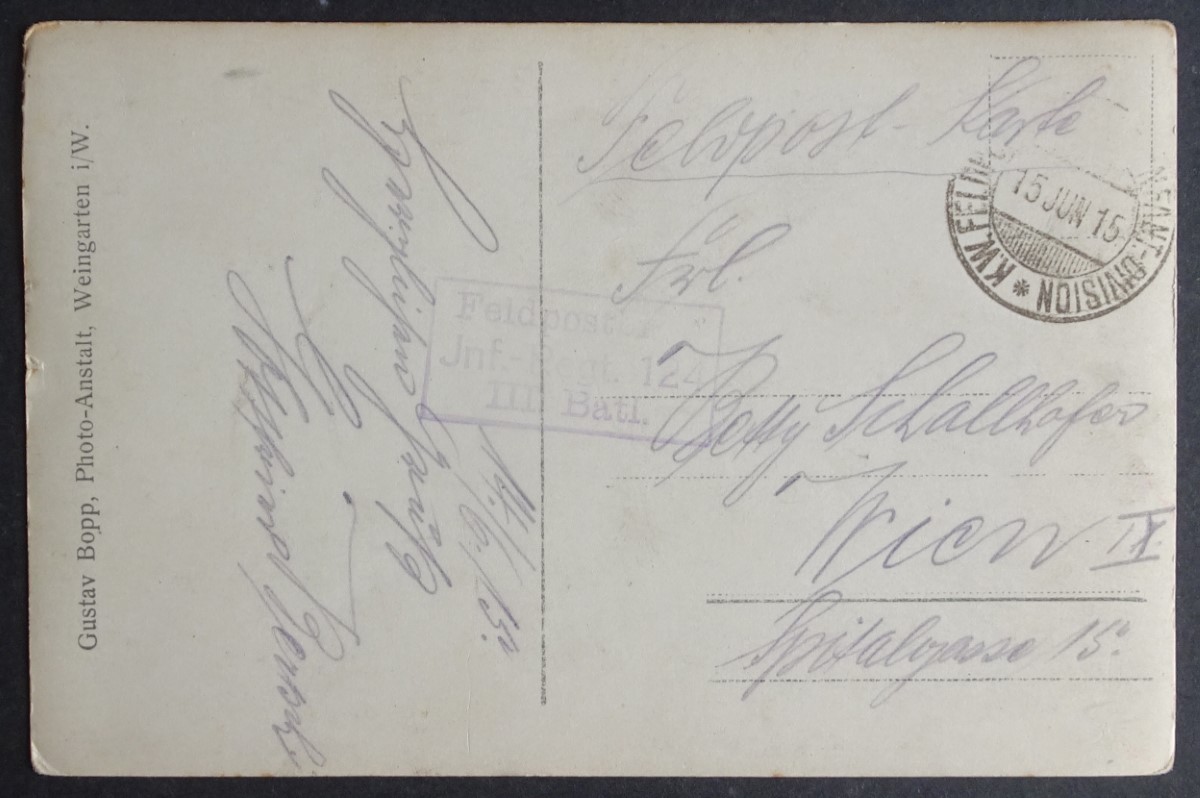 Gustav Bopp, Photo-Anstalt, Weingarten i/W.
14/6.15.
Herzlichen
Feldpost-Karte
K.W. FELD
15 JUN 15
DIVISION
Frl.
Feldpost
Jnf. Regt. 124
III. Batl.
Betty Schallhofer
Wien IX.
Spitalgasse 15.